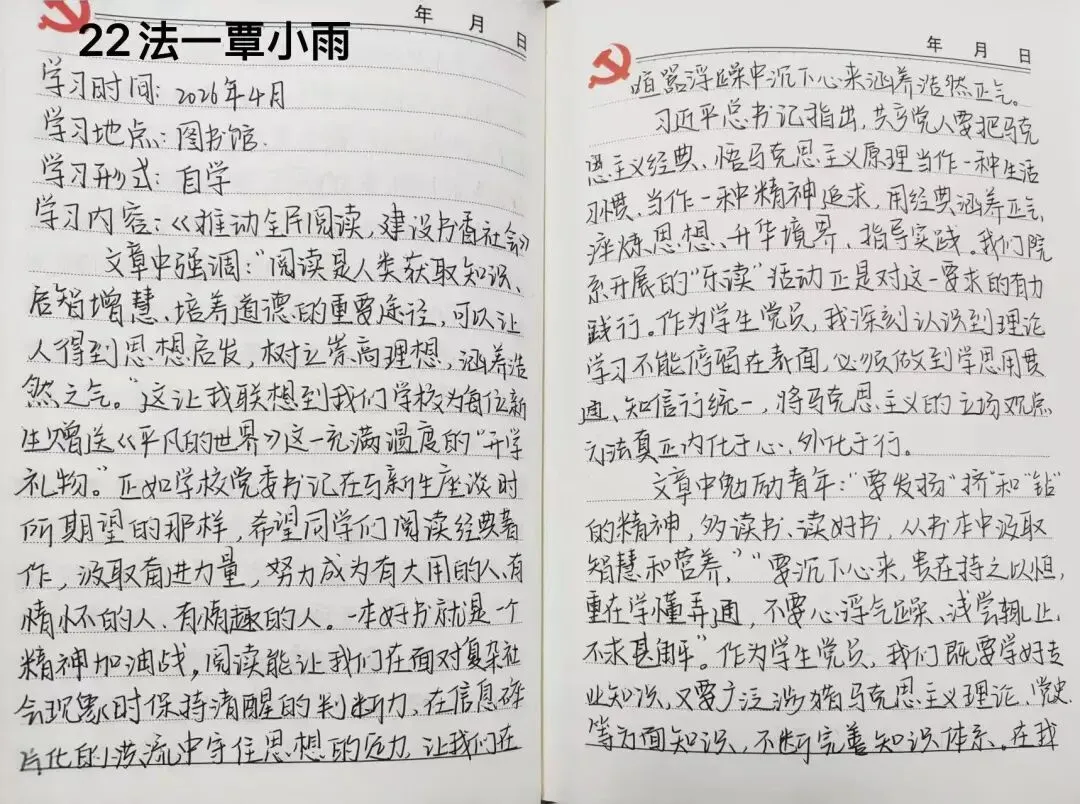 年 月 日
22法一覃小雨
学习时间：2026年4月
学习地点：图书馆.
学习形式：自学
学习内容：《推动全民阅读，建设书香社会》
文章中强调："阅读是人类获取知识、
启智增慧、培养道德的重要途径，可以让
人得到思想启发，树立崇高理想，涵养浩
然之气。"这让我联想到我们学校为每位新
生赠送《平凡的世界》这一充满温度的"开学
礼物。"正如学校党委书记在与新生座谈时
所期望的那样，希望同学们阅读经典著
作，汲取奋进力量，努力成为有大用的人、有
情怀的人、有情趣的人。一本好书就是一个
精神加油站，阅读能让我们在面对复杂社
会现象时保持清醒的判断力，在信息碎
片化的洪流中守住思想的定力，让我们在
年 月 日
喧嚣浮躁中沉下心来涵养浩然正气。
习近平总书记指出，共产党人要把马克
思主义经典、悟马克思主义原理当作一种生活
习惯、当作一种精神追求，用经典涵养正气、
淬炼思想、升华境界、指导实践。我们院
系开展的"乐读"活动正是对这一要求的有力
践行。作为学生党员，我深刻认识到理论
学习不能停留在表面，必须做到学思用贯
通、知信行统一，将马克思主义的立场观点
方法真正内化于心、外化于行。
文章中勉励青年："要发扬'挤'和'钻'
的精神，多读书、读好书，从书本中汲取
智慧和营养，""要沉下心来，贵在持之以恒，
重在学懂弄通，不要心浮气躁、浅尝辄止、
不求甚解"。作为学生党员，我们既要学好专
业知识，又要广泛涉猎马克思主义理论、党史
等方面知识，不断完善知识体系。在我